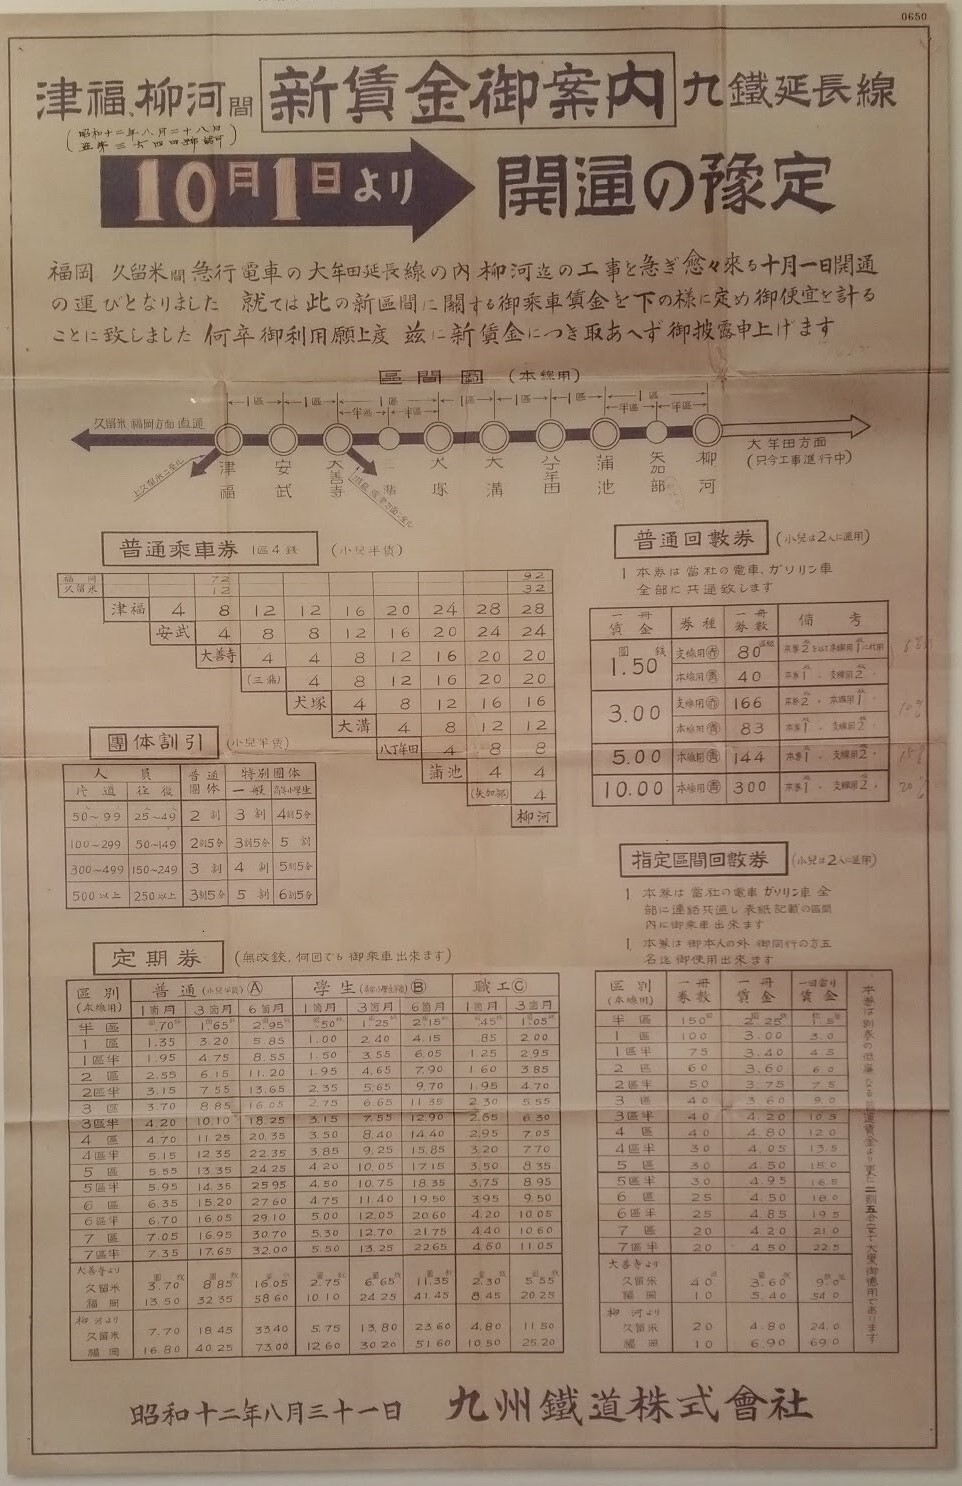 0650
津福、柳河間 新賃金御案内 九鐵延長線
(昭和十二年八月二十八日
10月1日より 開通の豫定
福岡 久留米間急行電車の大牟田延長線の內柳河迄の工事を急ぎ愈々來る十月一日開通
の運びとなりました 就ては此の新區間に關する御乘車賃金を下の樣に定め御便宜を計る
ことに致しました 何卒御利用願上度 茲に新賃金につき取あへず御披露申上げます
區間圖 (本線用)
1區 1區 1區 1區 1區 1區 1區
半區 半區 半區 半區
久留米 福岡方面直通
大牟田方面
(只今工事進行中)
津福 安武 大善寺 三潴 犬塚 大溝 八丁牟田 蒲池 矢加部 柳河
普通乘車券 1區4錢 (小兒半賃)
福岡 72 92
久留米 12 32
津福 4 8 12 12 16 20 24 28 28
安武 4 8 8 12 16 20 24 24
大善寺 4 4 8 12 16 20 20
(三潴) 4 8 12 16 20 20
犬塚 4 8 12 16 16
大溝 4 8 12 12
八丁牟田 4 8 8
蒲池 4 4
(矢加部) 4
柳河
團体割引 (小兒半賃)
人員 普通團体 特別團体
片道 往復 一般 高等小學生
50~99 25~49 2割 3割 4割5分
100~299 50~149 2割5分 3割5分 5割
300~499 150~249 3割 4割 5割5分
500以上 250以上 3割5分 5割 6割5分
普通回數券 (小兒は2人に通用)
1 本券は當社の電車、ガソリン車
全部に共通致します
一冊賃金 券種 一冊券數 備考
1.50 支線用 80
本線用 40
3.00 支線用 166
本線用 83
5.00 本線用 144
10.00 本線用 300
指定區間回數券 (小兒は2人に通用)
1 本券は當社の電車 ガソリン車全
部に連絡共通し表紙記載の區間
內に御乘車出來ます
1 本券は御本人の外 御同行の方五
名迄御使用出來ます
定期券 (無改鋏、何回でも御乘車出來ます)
區別 (本線用) 普通 (小兒半賃) Ⓐ 學生 Ⓑ 職工 Ⓒ
1箇月 3箇月 6箇月 1箇月 3箇月 6箇月 1箇月 3箇月
半區 .70 1.65 2.95 .50 1.25 2.15 .45 1.05
1區 1.35 3.20 5.85 1.00 2.40 4.15 .85 2.00
1區半 1.95 4.75 8.55 1.50 3.55 6.05 1.25 2.95
2區 2.55 6.15 11.20 1.95 4.65 7.90 1.60 3.85
2區半 3.15 7.55 13.65 2.35 5.65 9.70 1.95 4.70
3區 3.70 8.85 16.05 2.75 6.65 11.35 2.30 5.55
3區半 4.20 10.10 18.25 3.15 7.55 12.90 2.65 6.30
4區 4.70 11.25 20.35 3.50 8.40 14.40 2.95 7.05
4區半 5.15 12.35 22.35 3.85 9.25 15.85 3.20 7.70
5區 5.55 13.35 24.25 4.20 10.05 17.15 3.50 8.35
5區半 5.95 14.35 25.95 4.50 10.75 18.35 3.75 8.95
6區 6.35 15.20 27.60 4.75 11.40 19.50 3.95 9.50
6區半 6.70 16.05 29.10 5.00 12.05 20.60 4.20 10.05
7區 7.05 16.95 30.70 5.30 12.70 21.75 4.40 10.60
7區半 7.35 17.65 32.00 5.50 13.25 22.65 4.60 11.05
大善寺より
久留米 3.70 8.85 16.05 2.75 6.65 11.35 2.30 5.55
福岡 13.50 32.35 58.60 10.10 24.25 41.45 8.45 20.25
柳河より
久留米 7.70 18.45 33.40 5.75 13.80 23.60 4.80 11.50
福岡 16.80 40.25 73.00 12.60 30.20 51.60 10.50 25.20
區別 (本線用) 一冊券數 一冊賃金 一回當り賃金
半區 150 2.25 1.5
1區 100 3.00 3.0
1區半 75 3.40 4.5
2區 60 3.60 6.0
2區半 50 3.75 7.5
3區 40 3.60 9.0
3區半 40 4.20 10.5
4區 40 4.80 12.0
4區半 30 4.05 13.5
5區 30 4.50 15.0
5區半 30 4.95 16.5
6區 25 4.50 18.0
6區半 25 4.85 19.5
7區 20 4.20 21.0
7區半 20 4.50 22.5
大善寺より
久留米 40 3.60 9.0
福岡 10 5.40 54.0
柳河より
久留米 20 4.80 24.0
福岡 10 6.90 69.0
昭和十二年八月三十一日 九州鐵道株式會社